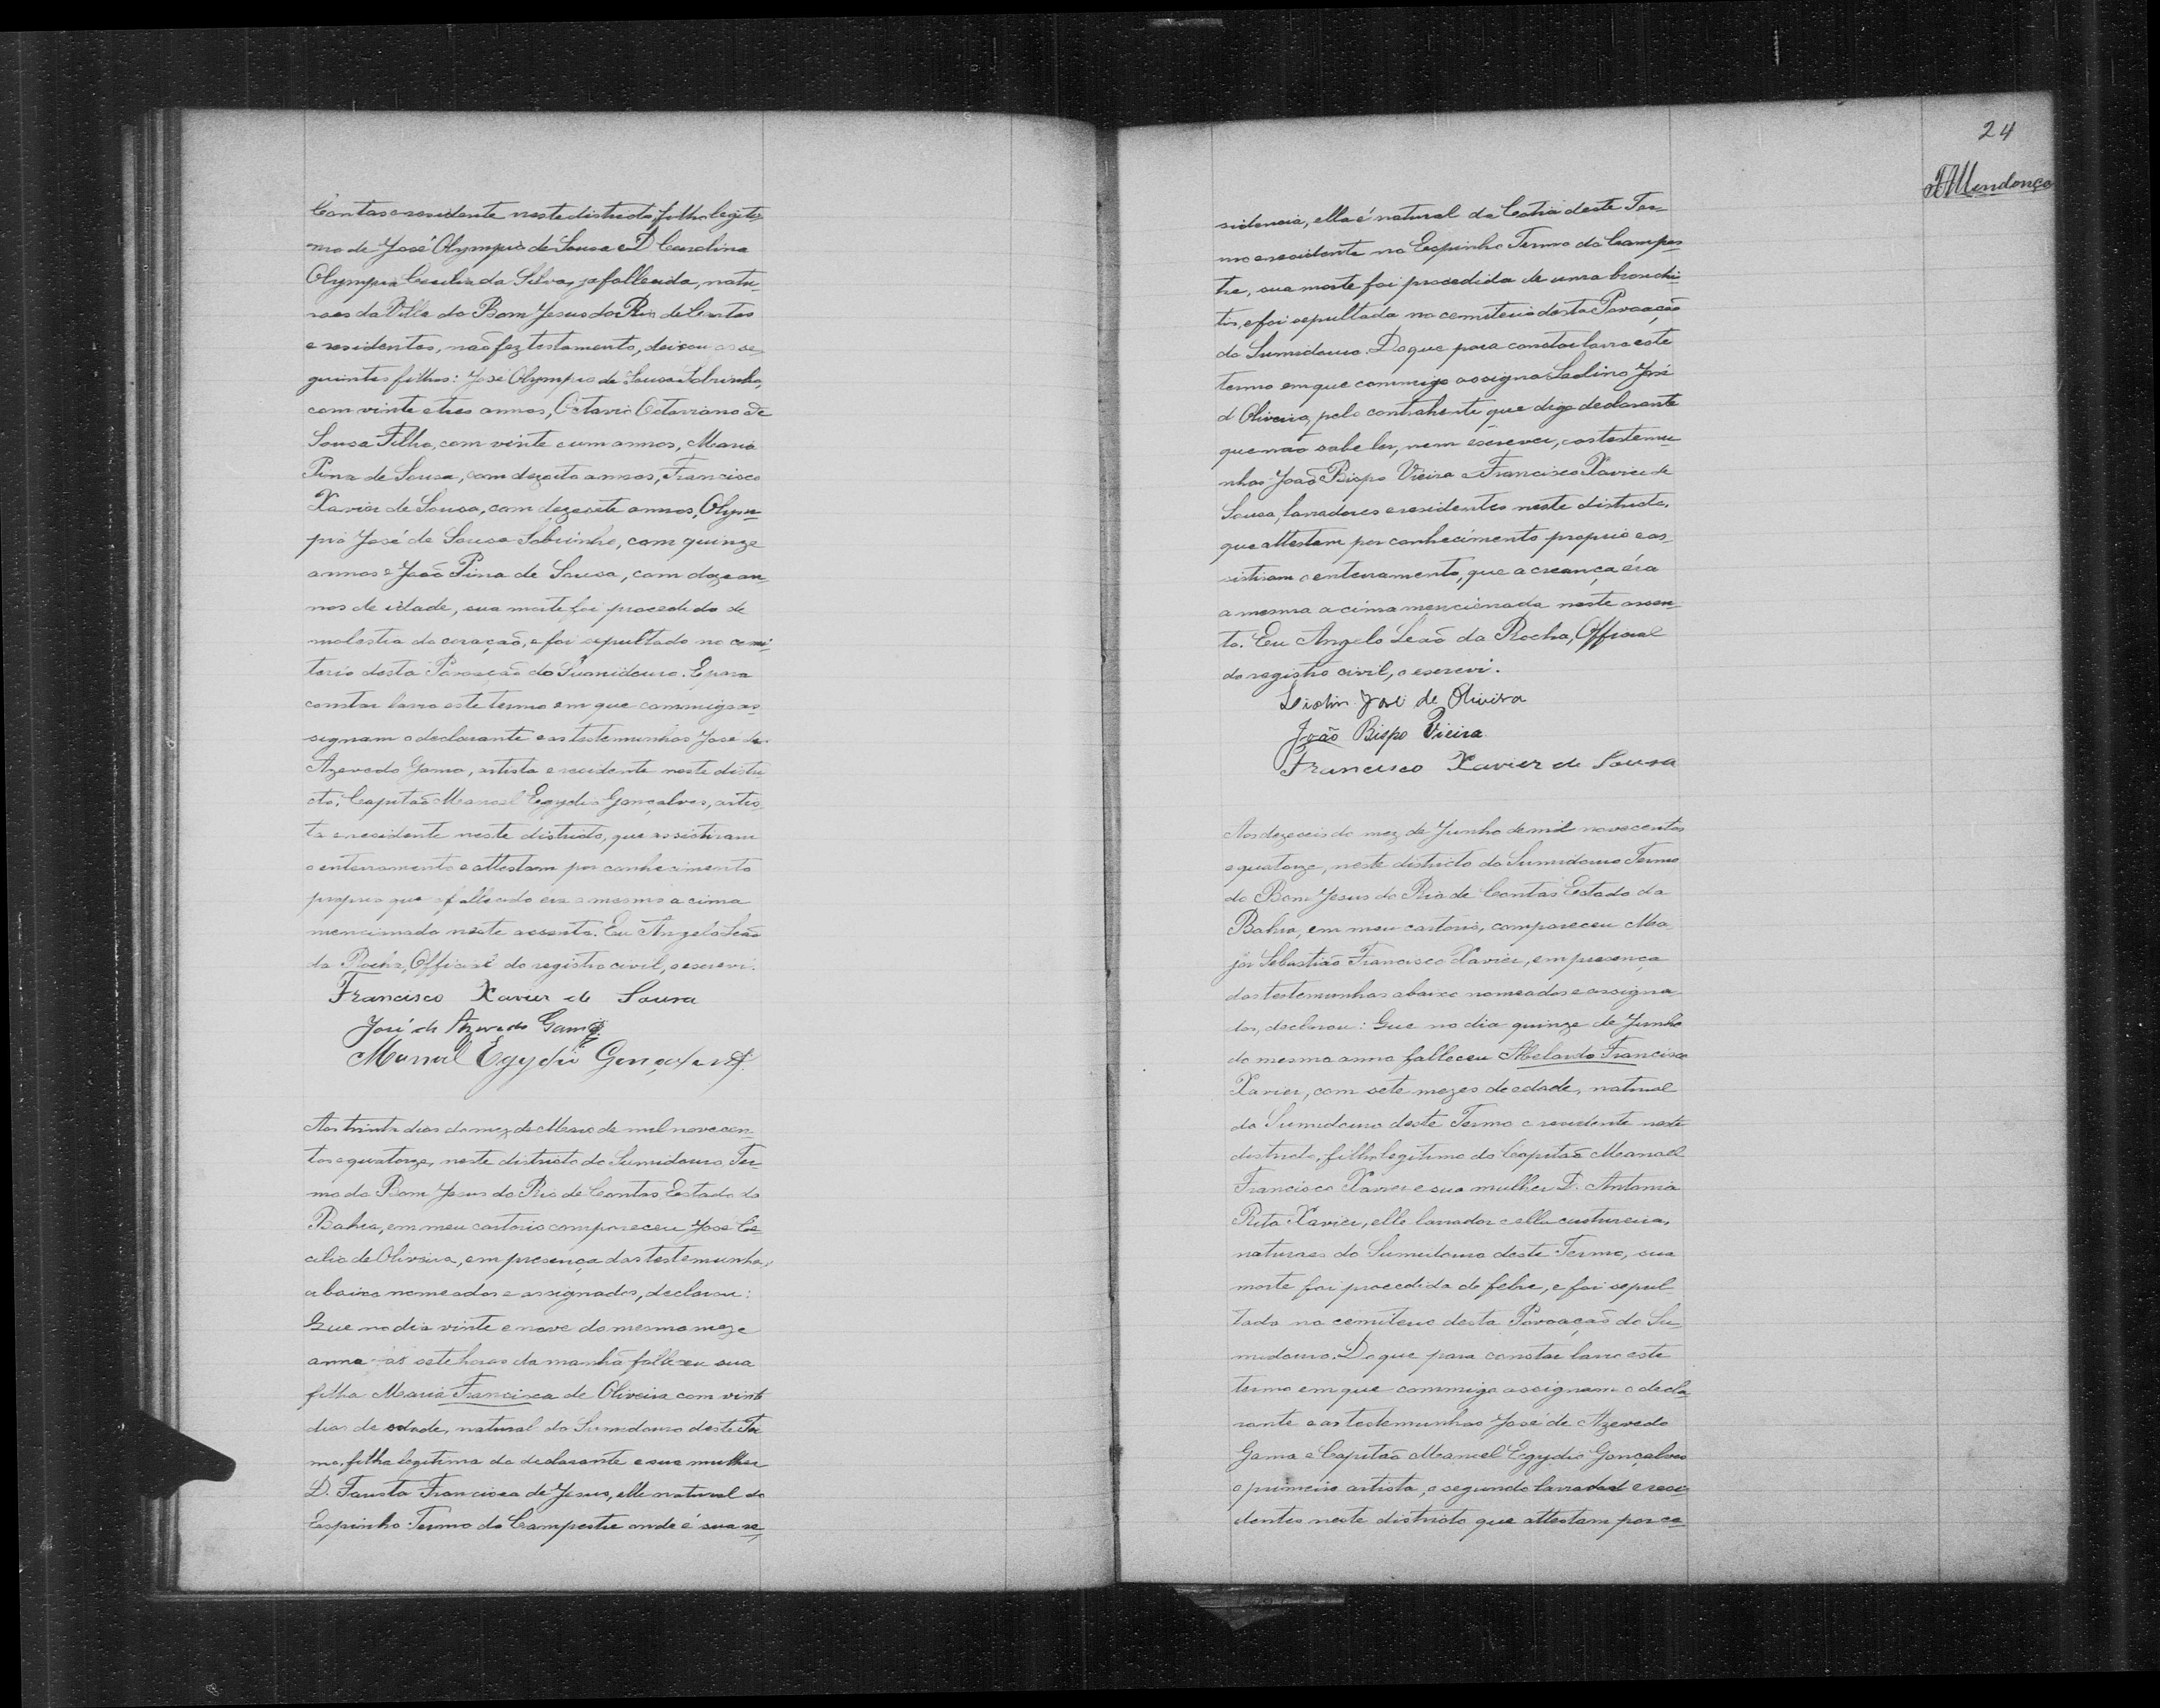 Contas e residente neste districto, filho legiti-
mo de José Olympio de Sousa e D. Carolina
Olympia Cecilia da Silva, ja fallecida, natu-
raes da Villa do Bom Jesus do Rio de Contas
e residentes, não fez testamento, deixou os se-
guintes filhos: José Olympio de Sousa Sobrinho,
com vinte e tres annos, Octavio Octaviano de
Sousa Filho, com vinte e um annos, Maria
Pina de Sousa, com dezoito annos, Francisco
Xavier de Sousa, com dezesete annos, Olym-
pio José de Sousa Sobrinho, com quinze
annos e João Pina de Sousa, com doze an-
nos de idade, sua morte foi procedido de
molestia do coração, e foi sepultado no cemi-
terio desta Povoação do Sumidouro. E para
constar lavro este termo em que commigo as-
signam o declarante e as testemunhas José de
Azevedo Gama, artista e residente neste distri
cto, Capitão Manoel Egydio Gonçalves, artis-
ta e residente neste districto, que assistiram
o enterramento e attestam por conhecimento
proprio que o fallecido éra o mesmo a cima
mencionado neste assento. Eu Angelo Leão
da Rocha, Official do registro civil, o escrevi.
Francisco Xavier de Sousa
José de Azevedo Gama
Manoel Egydio Gonçalves
Aos trinta dias do mez de Maio de mil novecen-
tos e quatorze, neste districto do Sumidouro, Ter-
mo do Bom Jesus do Rio de Contas Estado da
Bahia, em meu cartorio compareceu José Ce-
cilio de Oliveira, em presença das testemunhas
abaixo nomeados e assignados, declarou:
Que no dia vinte e nove do mesmo mez e
anno às sete horas da manhã falleceu sua
filha Maria Francisca de Oliveira com vinte
dias de edade, natural do Sumidouro deste Ter
mo, filha legitima do declarante e sua mulher
D. Fausta Francisca de Jesus, elle natural do
Espinho Termo do Campestre onde é sua re-
24
Mendonça
sidencia, ella é natural da Catia deste Ter-
mo e residente no Espinho Termo do Campes-
tre, sua morte foi procedida de uma bronchi-
tis, e foi sepultada no cemiterio desta Povoação
do Sumidouro. Do que para constar lavro este
termo em que commigo assigna Ladino José
d'Oliveira, pelo contrahente que digo declarante
que não sabe ler, nem escrever, e as testemu-
nhas João Bispo Vieira e Francisco Xavier de
Sousa, lavradores e residentes neste districto,
que attestam por conhecimento proprio e as-
sistiram o enterramento, que a creança éra
a mesma a cima mencionada neste assen-
to. Eu Angelo Leão da Rocha, Official
do registro civil, o escrevi.
José de Oliveira
João Bispo Vieira
Francisco Xavier de Sousa
Aos dezeseis do mez de Junho de mil novecentos
e quatorze, neste districto do Sumidouro Termo
do Bom Jesus do Rio de Contas Estado da
Bahia, em meu cartorio, compareceu Ma-
jor Sebastião Francisco Xavier, em presença
das testemunhas abaixo nomeados e assigna-
dos, declarou: Que no dia quinze de Junho
do mesmo anno falleceu Abelardo Francisco
Xavier, com sete mezes de edade, natural
do Sumidouro deste Termo e residente neste
districto, filho legitimo do Capitão Manoel
Francisco Xavier e sua mulher D. Antonia
Rita Xavier, elle lavrador e ella custureira,
naturaes do Sumidouro deste Termo, sua
morte foi procedida de febre, e foi sepul-
tado no cemiterio desta Povoação do Su-
midouro. Do que para constar lavro este
termo em que commigo assignam o decla-
rante e as testemunhas José de Azevedo
Gama e Capitão Manoel Egydio Gonçalves
o primeiro artista, o segundo lavrador e resi-
dentes neste districto que attestam por co-